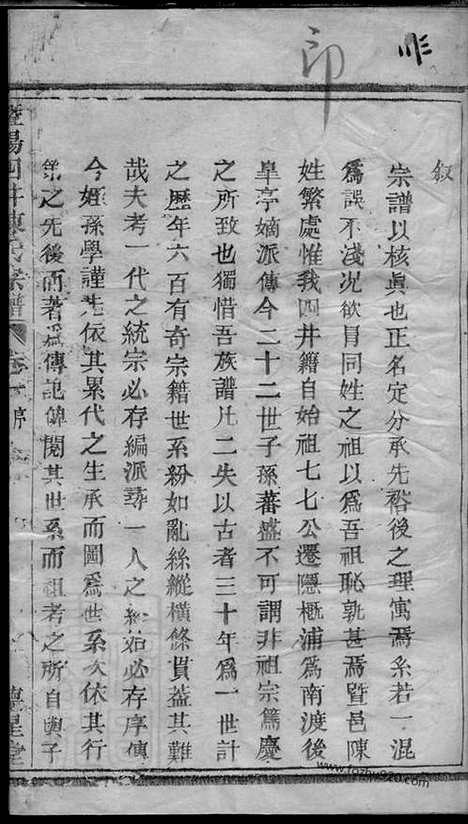 昨
印
叙
宗譜以核真也正名定分承先裕後之理寓焉系若一混
為誤不淺况欲冐同姓之祖以為吾祖恥孰甚焉暨邑陳
姓繁處惟我四井籍自始祖七七公遷隱概浦為南渡後
皐亭嫡派傳今二十二世子孫蕃盛不可謂非祖宗篤慶
之所致也獨惜吾族譜凡二失以古者三十年為一世計
之歷年六百有奇宗籍世系紛如亂絲縱橫條貫葢其難
哉夫考一代之統宗必存編派尋一人之終始必存序傳
今姪孫學謹先依其累代之生承而圖為世系次依其行
第之先後而著為傳記俾閱其世系而祖考之所自與子
暨陽四井陳氏宗譜 卷一 序
聚星堂
www.fozhu920.com